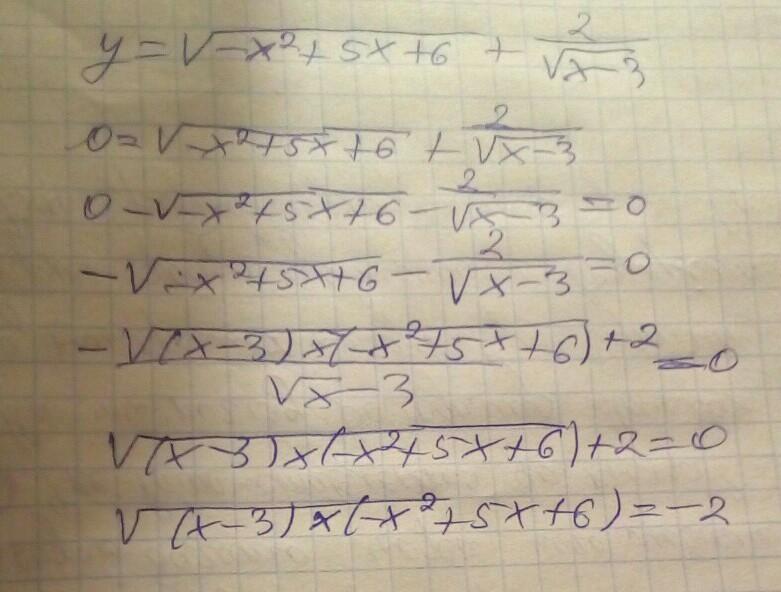 y = √(-x² + 5x + 6) + 2/√(x-3)
0 = √(-x² + 5x + 6) + 2/√(x-3)
0 - √(-x² + 5x + 6) - 2/√(x-3) = 0
- √(-x² + 5x + 6) - 2/√(x-3) = 0
- (√((x-3) × (-x² + 5x + 6)) + 2)/(√x - 3) = 0
√((x-3) × (-x² + 5x + 6)) + 2 = 0
√((x-3) × (-x² + 5x + 6)) = -2